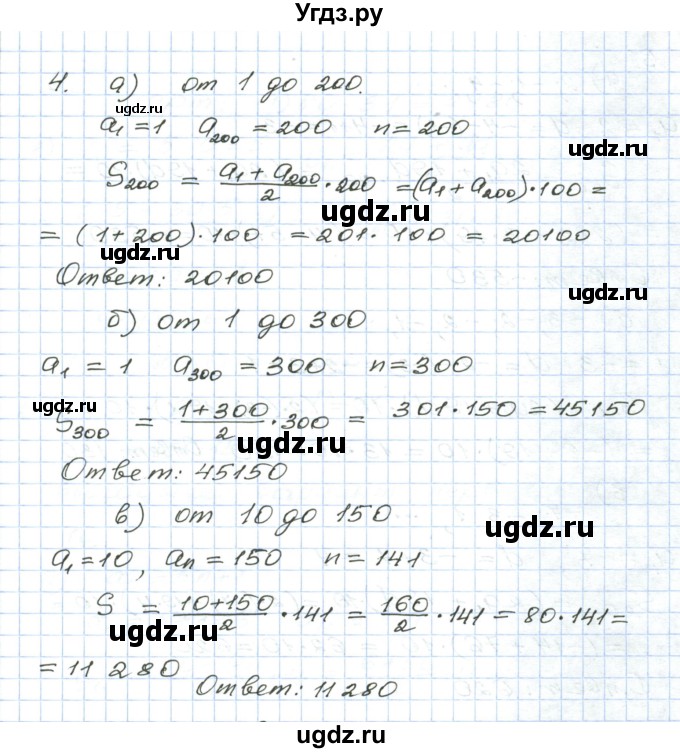 Угдз.ру
4. а) от 1 до 200.
ugdz.ru
ugdz.ru
a₁ = 1 a₂₀₀ = 200 n = 200
ugdz.ru
S₂₀₀ = (a₁ + a₂₀₀)/2 · 200 = (a₁ + a₂₀₀) · 100 =
ugdz.ru
= (1 + 200) · 100 = 201 · 100 = 20100
ugdz.ru
Ответ: 20100
ugdz.ru
б) от 1 до 300
a₁ = 1 a₃₀₀ = 300 n = 300
ugdz.ru
S₃₀₀ = (1+300)/2 · 300 = 301 · 150 = 45150
ugdz.ru
Ответ: 45150
в) от 10 до 150
ugdz.ru
a₁ = 10, aₙ = 150 n = 141
S = (10+150)/2 · 141 = 160/2 · 141 = 80 · 141 =
ugdz.ru
= 11 280
Ответ: 11 280
ugdz.ru